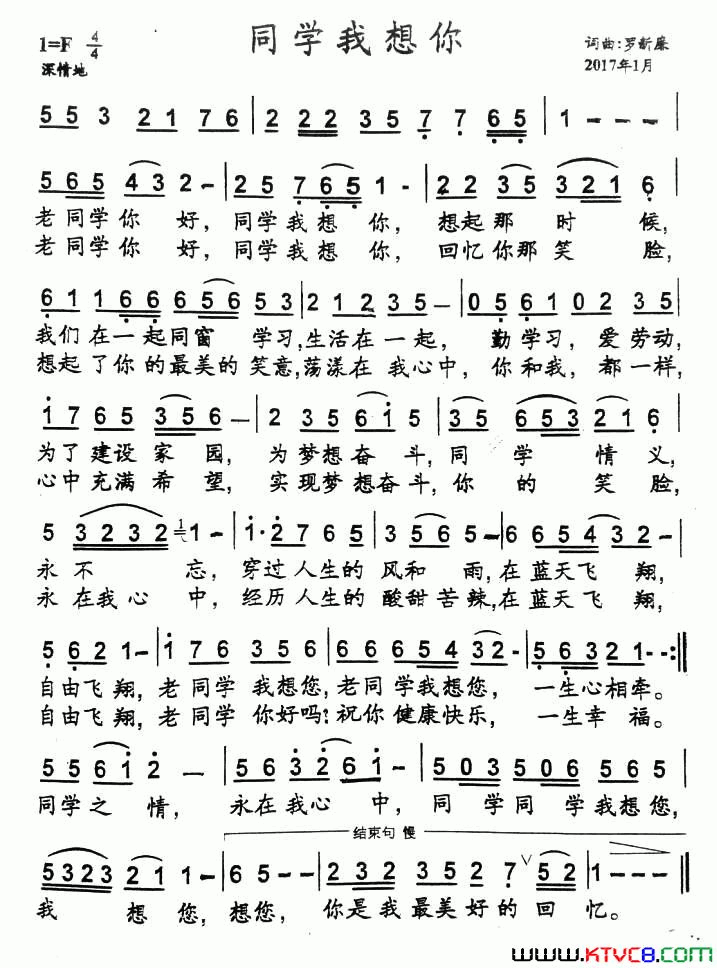 同学我想你
1=F 4/4
词曲:罗新廉
深情地
2017年1月
5 5 3 2 1 7 6 | 2 2 2 2 3 5 7 7 6 5 | 1 - - - |
5 6 5 4 3 2 - | 2 5 7 6 5 1 - | 2 2 3 5 3 2 1 6 |
老同学你 好, 同学我想 你, 想起那 时 候,
老同学你 好, 同学我想 你, 回忆你那笑 脸,
6 1 1 6 6 6 5 6 5 3 | 2 1 2 3 5 - | 0 5 6 1 0 2 3 5 |
我们在一起同窗 学习,生活在一起, 勤学习, 爱劳动,
想起了你的最美的笑意,荡漾在我心中, 你和我, 都一样,
1 7 6 5 3 5 6 - | 2 3 5 6 1 5 | 3 5 6 5 3 2 1 6 |
为了建设家园, 为梦想奋斗,同 学 情义,
心中充满希望, 实现梦想奋斗,你 的 笑脸,
5 3 2 3 2 1 1 - | 1· 2 7 6 5 | 3 5 6 5 - | 6 6 5 4 3 2 - |
永不 忘, 穿过人生的 风和 雨,在蓝天飞 翔,
永在我心 中, 经历人生的 酸甜苦辣,在蓝天飞 翔,
5 6 2 1 - | 1 7 6 3 5 6 | 6 6 6 5 4 3 2 - | 5 6 3 2 1 - - :‖
自由飞翔,老同学 我想您,老同学我想您, 一生心相牵。
自由飞翔,老同学 你好吗?祝你健康快乐, 一生幸福。
5 5 6 1 2 - | 5 6 3 2 6 1 - | 5 0 3 5 0 6 5 6 5 |
同学之 情, 永在我心 中, 同 学同 学我想您,
结束句 慢
5 3 2 3 2 1 1 - | 6 5 - - | 2 3 2 3 5 2 7 ∨ 5 2 | 1 - - - ‖
我 想 您,想您, 你是我最美好的 回 忆。
www.KTVC8.com